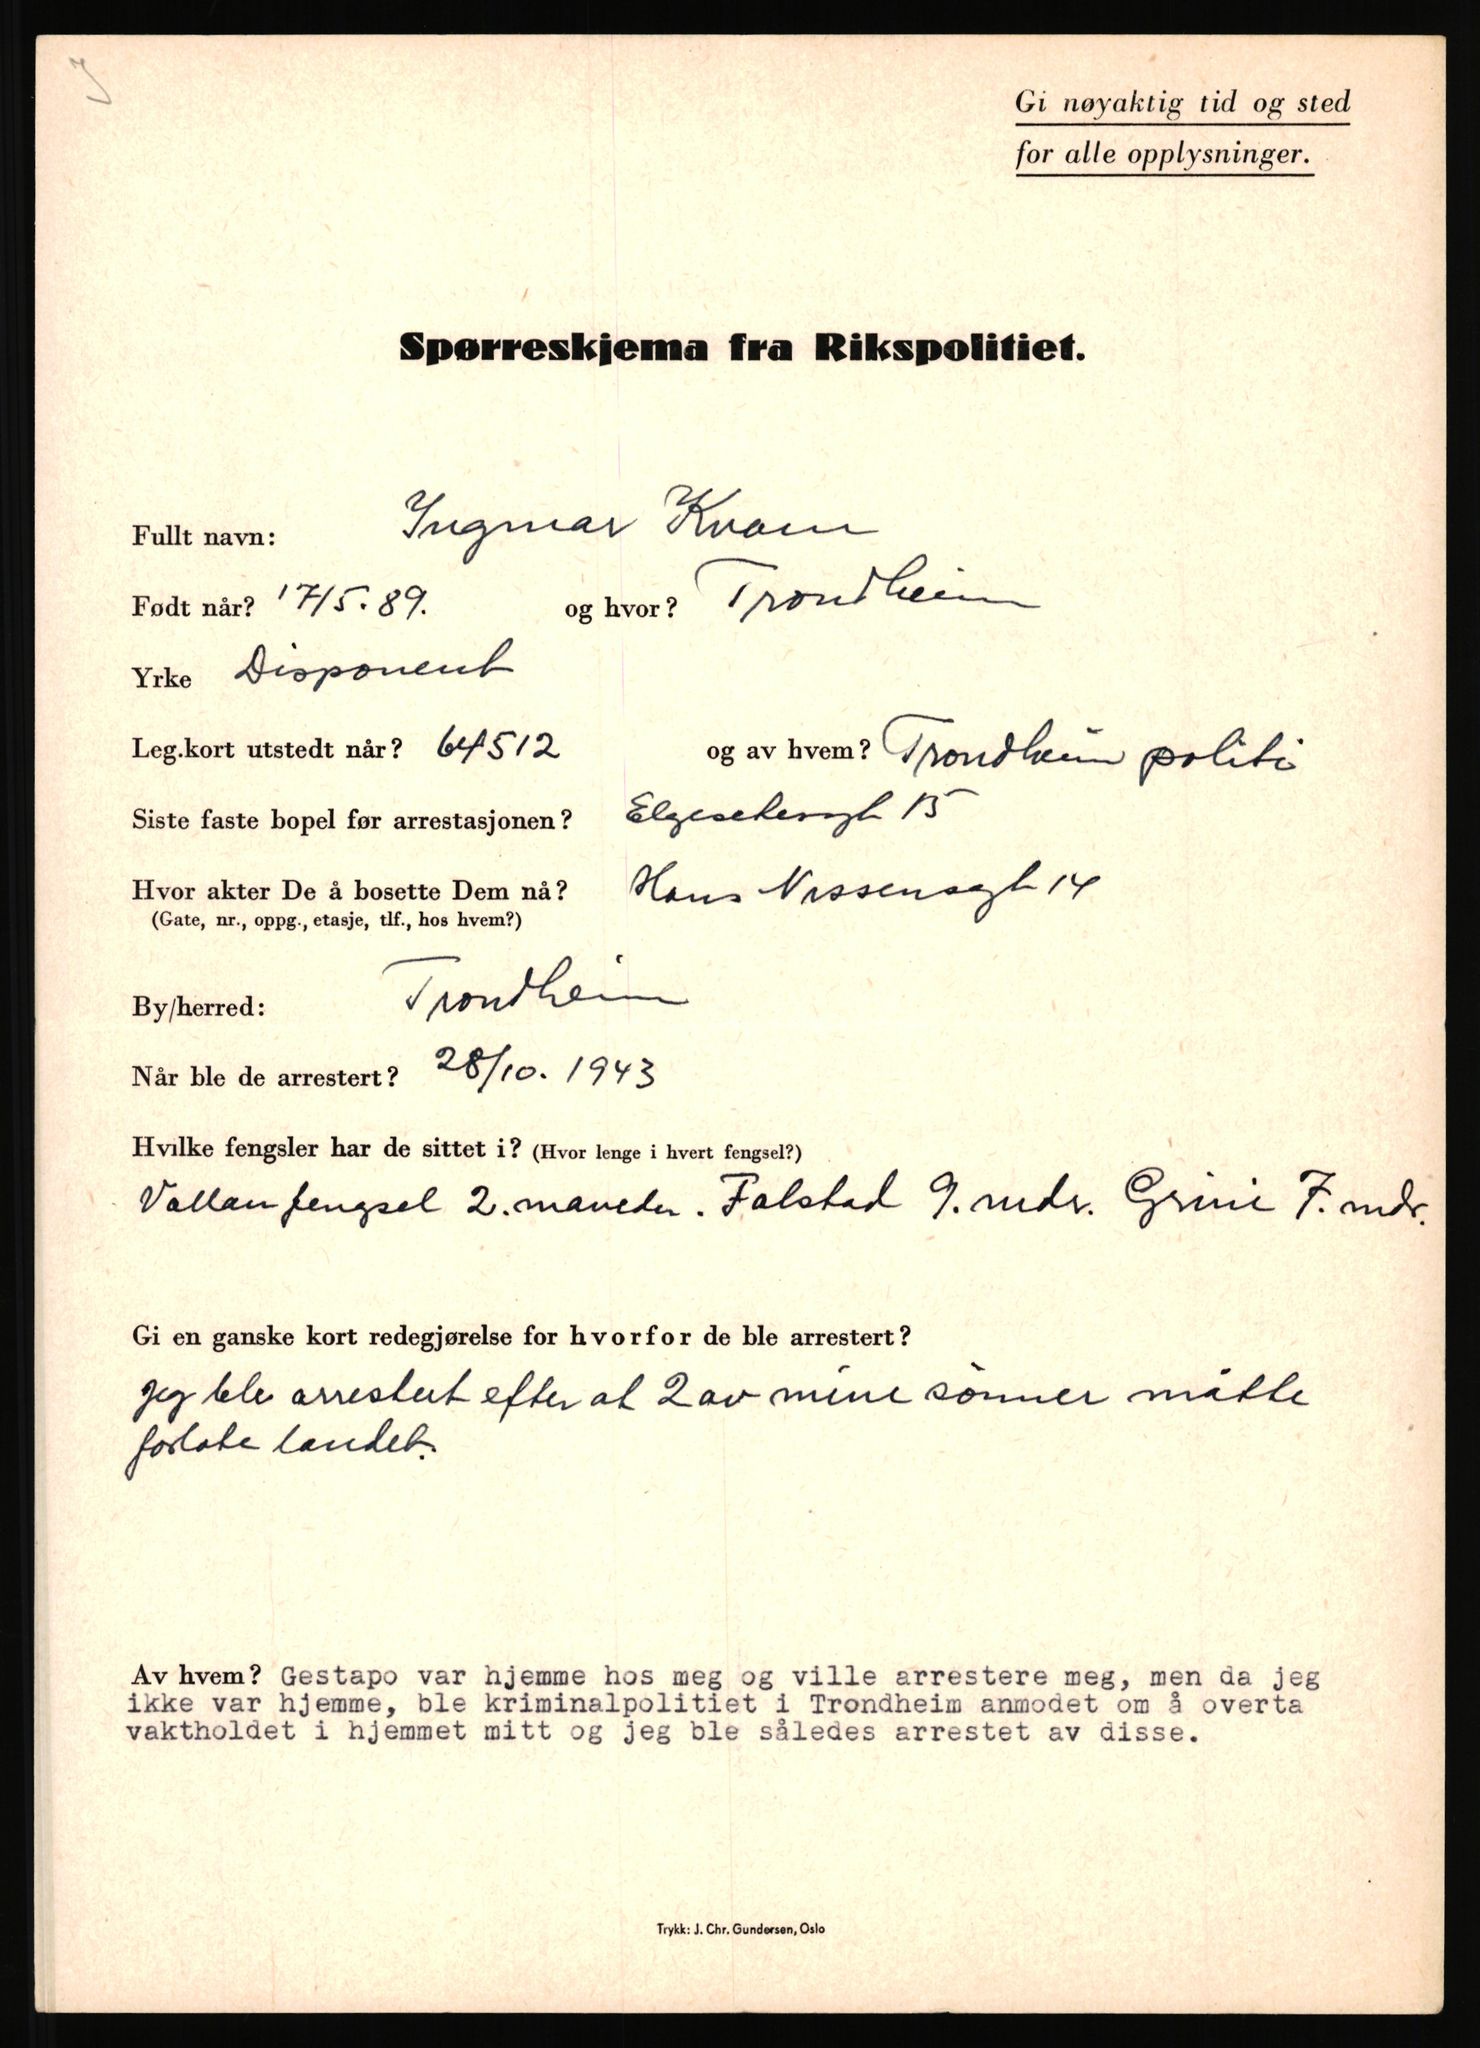 Gi nøyaktig tid og sted
for alle opplysninger.
Spørreskjema fra Rikspolitiet.
Fullt navn: Ingmar Kvam
Født når? 17/5.89. og hvor? Trondheim
Yrke Disponent
Leg.kort utstedt når? 64512 og av hvem? Trondheim politi
Siste faste bopel før arrestasjonen? Elgesetergt 15
Hvor akter De å bosette Dem nå? Hans Nissensgt 14
(Gate, nr., oppg., etasje, tlf., hos hvem?)
By/herred: Trondheim
Når ble de arrestert? 28/10. 1943
Hvilke fengsler har de sittet i? (Hvor lenge i hvert fengsel?)
Vollan fengsel 2. maneder. Falstad 9. mdr. Grini 7. mdr.
Gi en ganske kort redegjørelse for hvorfor de ble arrestert?
Jeg ble arrestert efter at 2 av mine sønner måtte
forlate landet.
Av hvem? Gestapo var hjemme hos meg og ville arrestere meg, men da jeg
ikke var hjemme, ble kriminalpolitiet i Trondheim anmodet om å overta
vaktholdet i hjemmet mitt og jeg ble således arrestet av disse.
Trykk: J. Chr. Gundersen, Oslo